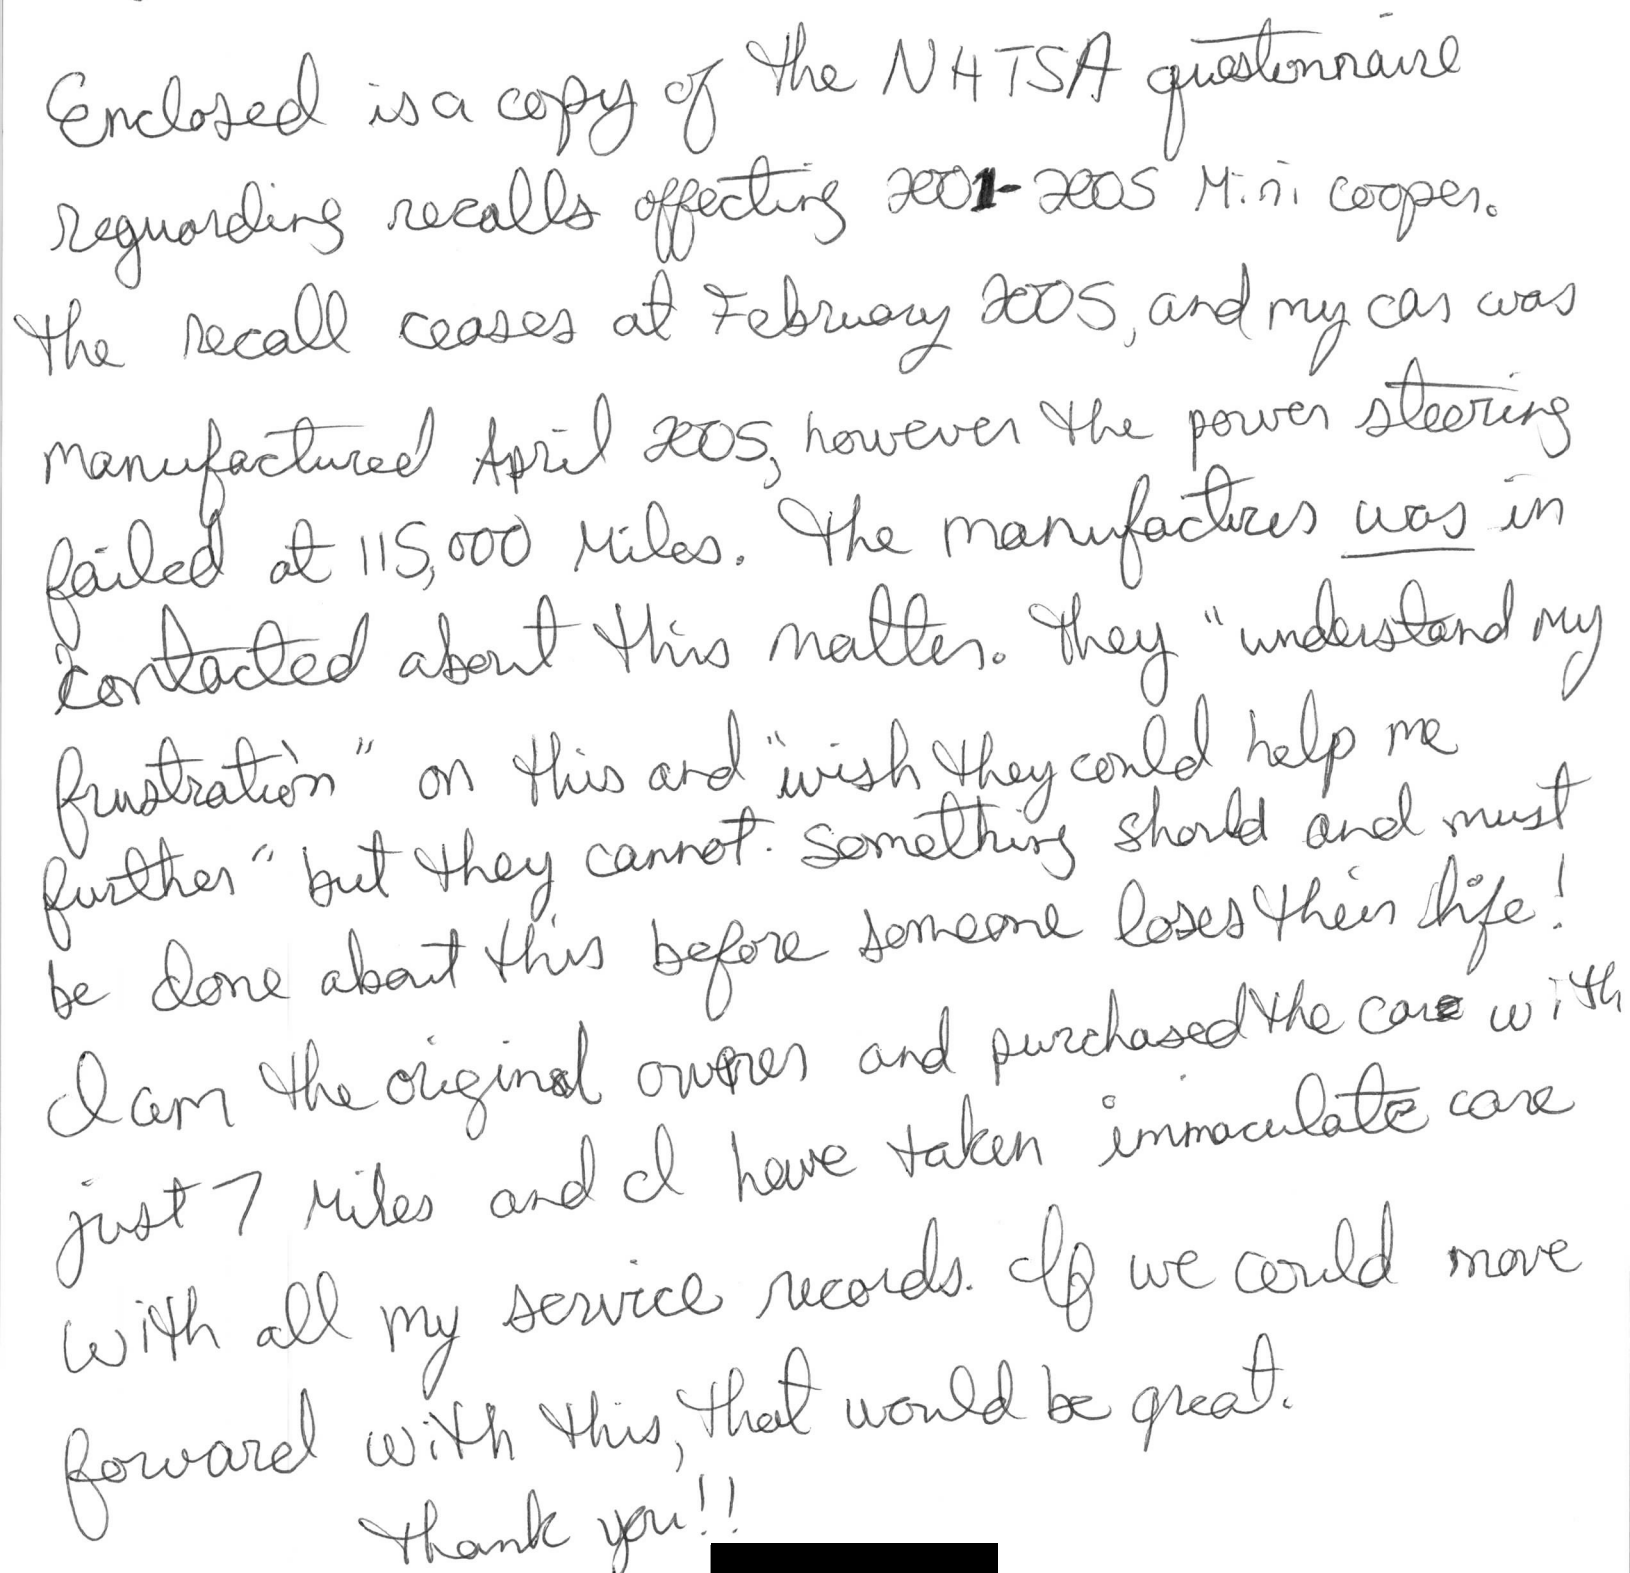 Enclosed is a copy of the NHTSA questionnaire
reguarding recalls effecting 2001-2005 Mini cooper.
The recall ceases at February 2005, and my car was
manufactured April 2005, however the power steering
failed at 115,000 Miles. The manufactures was in
contacted about this matter. They "understand my
frustration" on this and "wish they could help me
further" but they cannot. Something should and must
be done about this before someone loses their life!
I am the original owner and purchased the car with
just 7 Miles and I have taken immaculate care
with all my service records. If we could move
forward with this, that would be great.
Thank you!!